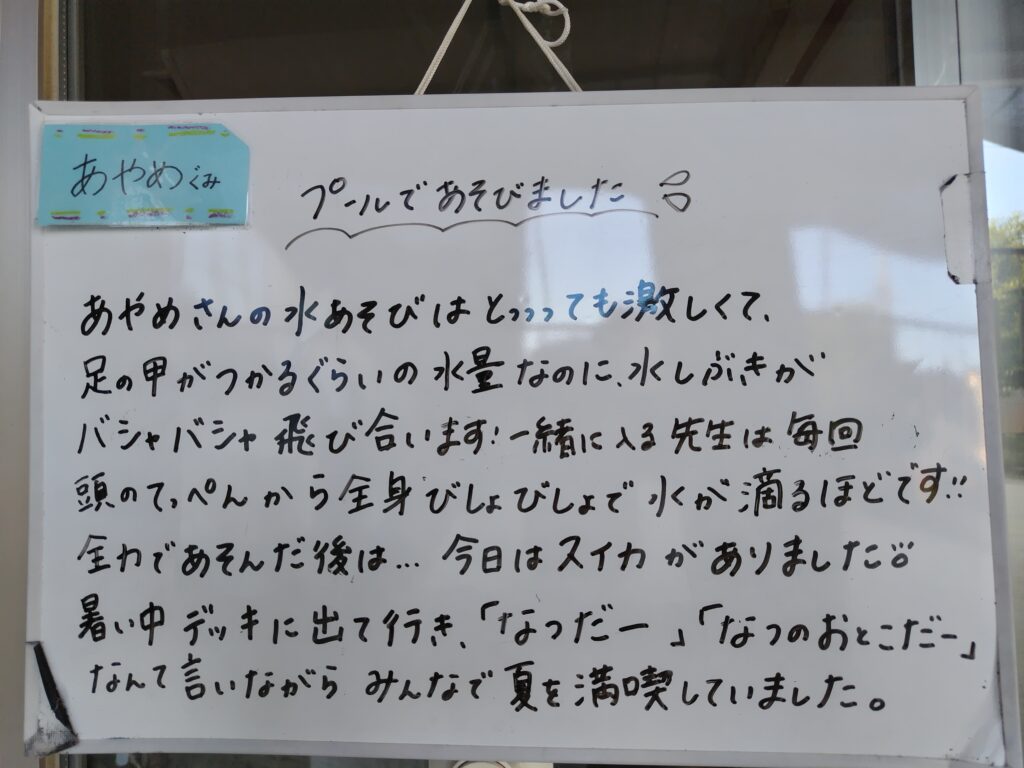 あやめぐみ
プールであそびました
あやめさんの水あそびはとっっっても激しくて、
足の甲がつかるぐらいの水量なのに、水しぶきが
バシャバシャ飛び合います!一緒に入る先生は毎回
頭のてっぺんから全身びしょびしょで水が滴るほどです!!
全力であそんだ後は…今日はスイカがありました
暑い中デッキに出て行き、「なつだー」「なつのおとこだー」
なんて言いながらみんなで夏を満喫していました。